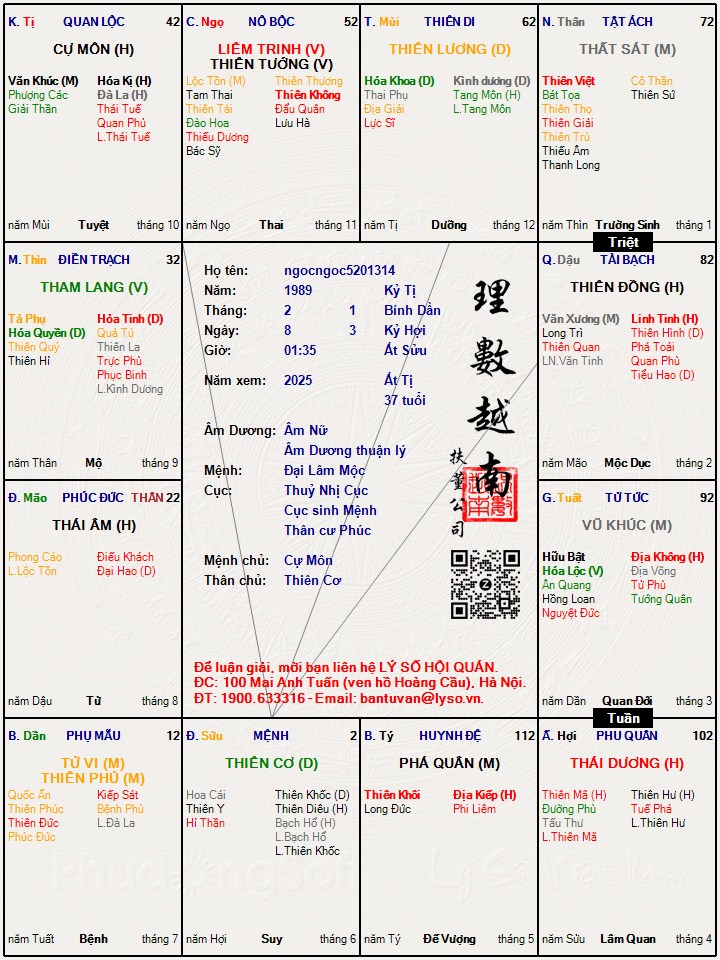 K. Tị QUAN LỘC 42
CỰ MÔN (H)
Văn Khúc (M) Hóa Kị (H)
Phượng Các Đà La (H)
Giải Thần Thái Tuế
Quan Phủ
L.Thái Tuế
năm Mùi Tuyệt tháng 10
C. Ngọ NÔ BỘC 52
LIÊM TRINH (V)
THIÊN TƯỚNG (V)
Lộc Tồn (M) Thiên Thương
Tam Thai Thiên Không
Thiên Tài Đẩu Quân
Đào Hoa Lưu Hà
Thiếu Dương
Bác Sỹ
năm Ngọ Thai tháng 11
T. Mùi THIÊN DI 62
THIÊN LƯƠNG (D)
Hóa Khoa (D) Kình dương (D)
Thai Phụ Tang Môn (H)
Địa Giải L.Tang Môn
Lực Sĩ
năm Tị Dưỡng tháng 12
N. Thân TẬT ÁCH 72
THẤT SÁT (M)
Thiên Việt Cô Thần
Bát Tọa Thiên Sứ
Thiên Thọ
Thiên Giải
Thiên Trù
Thiếu Âm
Thanh Long
năm Thìn Trường Sinh tháng 1
Triệt
M. Thìn ĐIỀN TRẠCH 32
THAM LANG (V)
Tả Phụ Hỏa Tinh (D)
Hóa Quyền (D) Quả Tú
Thiên Quý Thiên La
Thiên Hỉ Trực Phù
Phục Binh
L.Kình Dương
năm Thân Mộ tháng 9
Họ tên: ngocngoc5201314
Năm: 1989 Kỷ Tị
Tháng: 2 1 Bính Dần
Ngày: 8 3 Kỷ Hợi
Giờ: 01:35 Ất Sửu
Năm xem: 2025 Ất Tị
37 tuổi
Âm Dương: Âm Nữ
Âm Dương thuận lý
Mệnh: Đại Lâm Mộc
Cục: Thuỷ Nhị Cục
Cục sinh Mệnh
Thân cư Phúc
Mệnh chủ: Cự Môn
Thân chủ: Thiên Cơ
理數越南
扶董公司
Z
Để luận giải, mời bạn liên hệ LÝ SỐ HỘI QUÁN.
ĐC: 100 Mai Anh Tuấn (ven hồ Hoàng Cầu), Hà Nội.
ĐT: 1900.633316 - Email: bantuvan@lyso.vn.
Q. Dậu TÀI BẠCH 82
THIÊN ĐỒNG (H)
Văn Xương (M) Linh Tinh (H)
Long Trì Thiên Hình (D)
Thiên Quan Phá Toái
LN.Văn Tinh Quan Phù
Tiểu Hao (D)
năm Mão Mộc Dục tháng 2
Đ. Mão PHÚC ĐỨC THÂN 22
THÁI ÂM (H)
Phong Cáo Điếu Khách
L.Lộc Tồn Đại Hao (D)
năm Dậu Tử tháng 8
G. Tuất TỬ TỨC 92
VŨ KHÚC (M)
Hữu Bật Địa Không (H)
Hóa Lộc (V) Địa Võng
Ân Quang Tử Phù
Hồng Loan Tướng Quân
Nguyệt Đức
năm Dần Quan Đới tháng 3
Tuần
B. Dần PHỤ MẪU 12
TỬ VI (M)
THIÊN PHỦ (M)
Quốc Ấn Kiếp Sát
Thiên Phúc Bệnh Phù
Thiên Đức L.Đà La
Phúc Đức
năm Tuất Bệnh tháng 7
Đ. Sửu MỆNH 2
THIÊN CƠ (D)
Hoa Cái Thiên Khốc (D)
Thiên Y Thiên Diêu (H)
Hỉ Thần Bạch Hổ (H)
L.Bạch Hổ
L.Thiên Khốc
năm Hợi Suy tháng 6
B. Tý HUYNH ĐỆ 112
PHÁ QUÂN (M)
Thiên Khôi Địa Kiếp (H)
Long Đức Phi Liêm
năm Tý Đế Vượng tháng 5
Ấ. Hợi PHU QUÂN 102
THÁI DƯƠNG (H)
Thiên Mã (H) Thiên Hư (H)
Đường Phù Tuế Phá
Tấu Thư L.Thiên Hư
L.Thiên Mã
năm Sửu Lâm Quan tháng 4